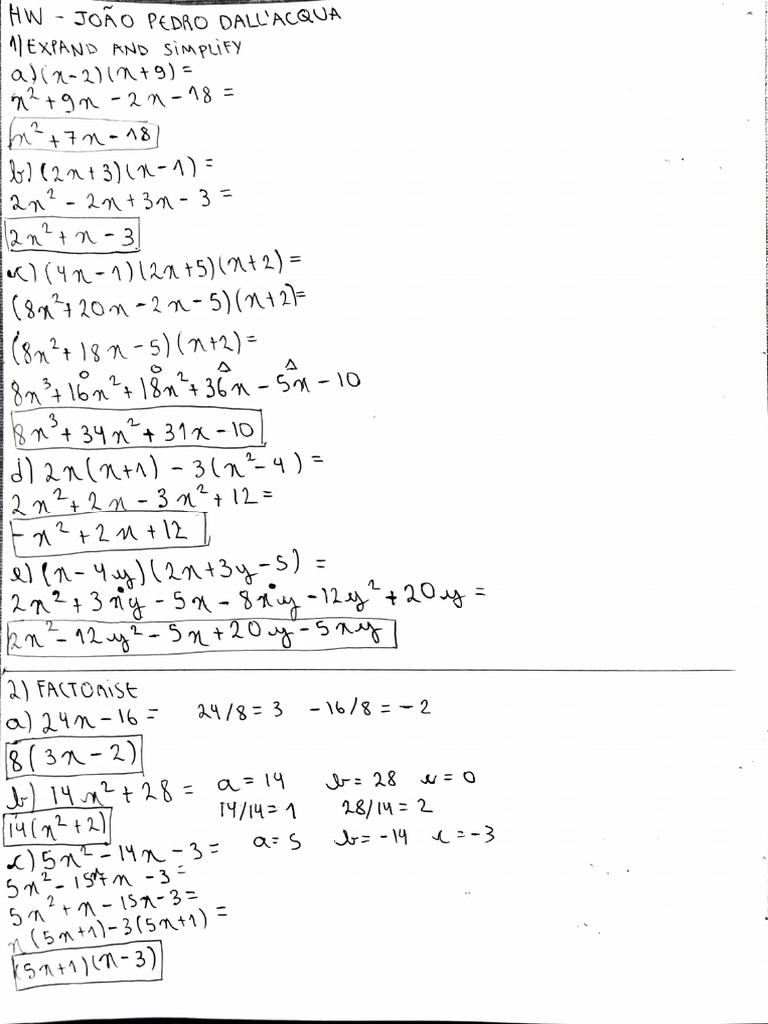 HW - JOÃO PEDRO DALL'ACQUA
1) EXPAND AND SIMPLIFY
a) (x-2)(x+9) =
x² + 9x - 2x - 18 =
x² + 7x - 18
b) (2x+3)(x-1) =
2x² - 2x + 3x - 3 =
2x² + x - 3
c) (4x-1)(2x+5)(x+2) =
(8x² + 20x - 2x - 5)(x+2) =
(8x² + 18x - 5)(x+2) =
8x³ + 16x² + 18x² + 36x - 5x - 10
8x³ + 34x² + 31x - 10
d) 2x(x+1) - 3(x²-4) =
2x² + 2x - 3x² + 12 =
-x² + 2x + 12
e) (x-4y)(2x+3y-5) =
2x² + 3xy - 5x - 8xy - 12y² + 20y =
2x² - 12y² - 5x + 20y - 5xy
2) FACTORISE
a) 24x - 16 = 24/8 = 3 -16/8 = -2
8(3x - 2)
b) 14x² + 28 = a = 14 b = 28 c = 0
14/14 = 1 28/14 = 2
14(x²+2)
c) 5x² - 14x - 3 = a = 5 b = -14 c = -3
5x² - 15 x - 3 =
5x² + x - 15x - 3 =
x(5x+1) - 3(5x+1) =
(5x+1)(x-3)